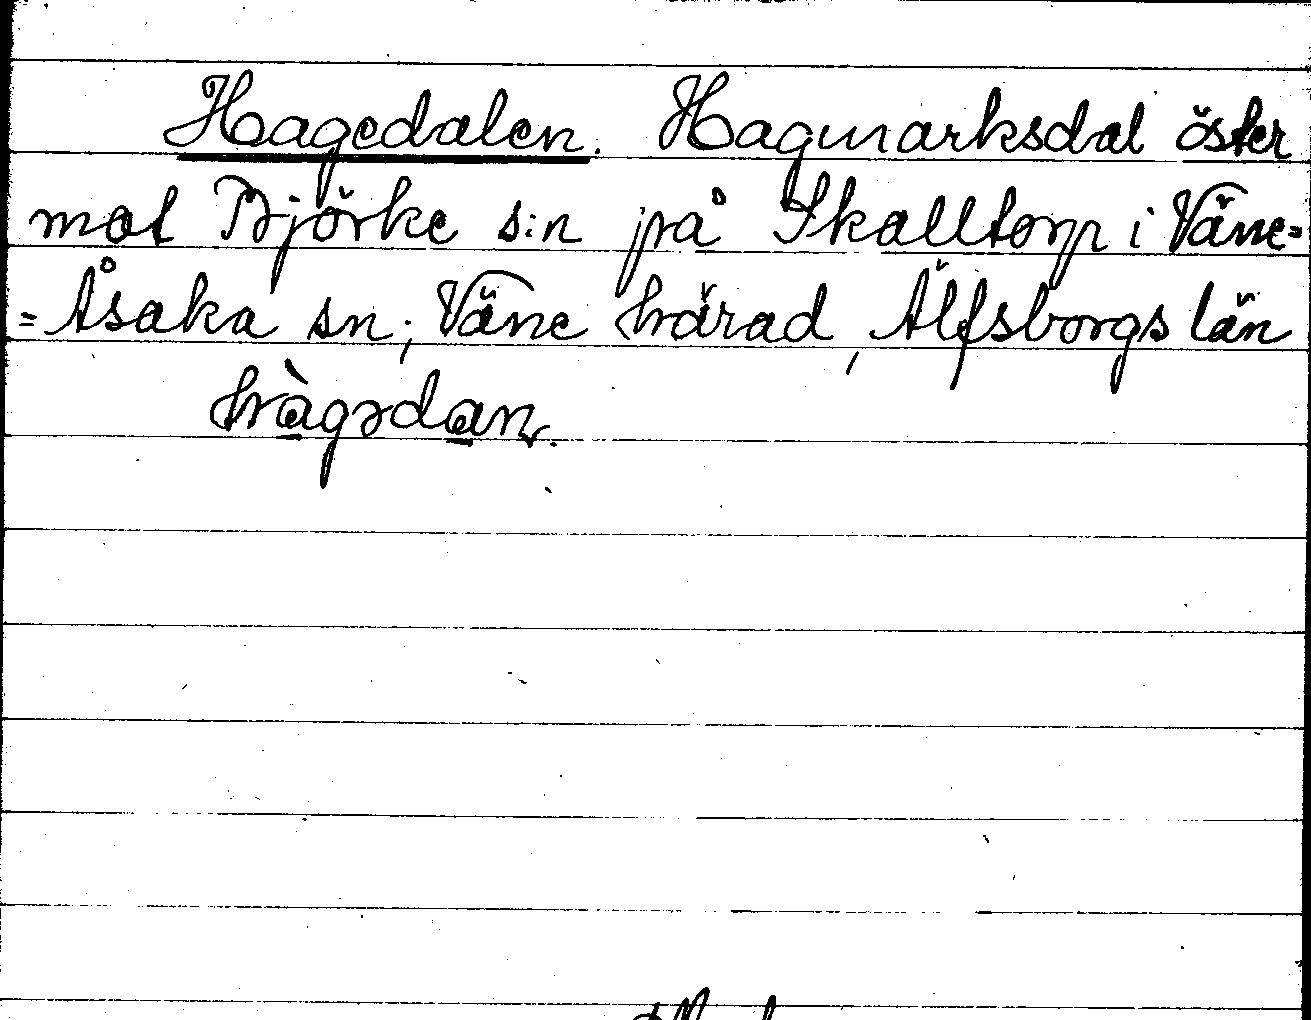 Hagedalen. Hagmarksdal öster
mot Björke s:n på Skalltorp i Väne=
=Åsaka sn, Väne härad, Älfsborgs län
hàgədan.